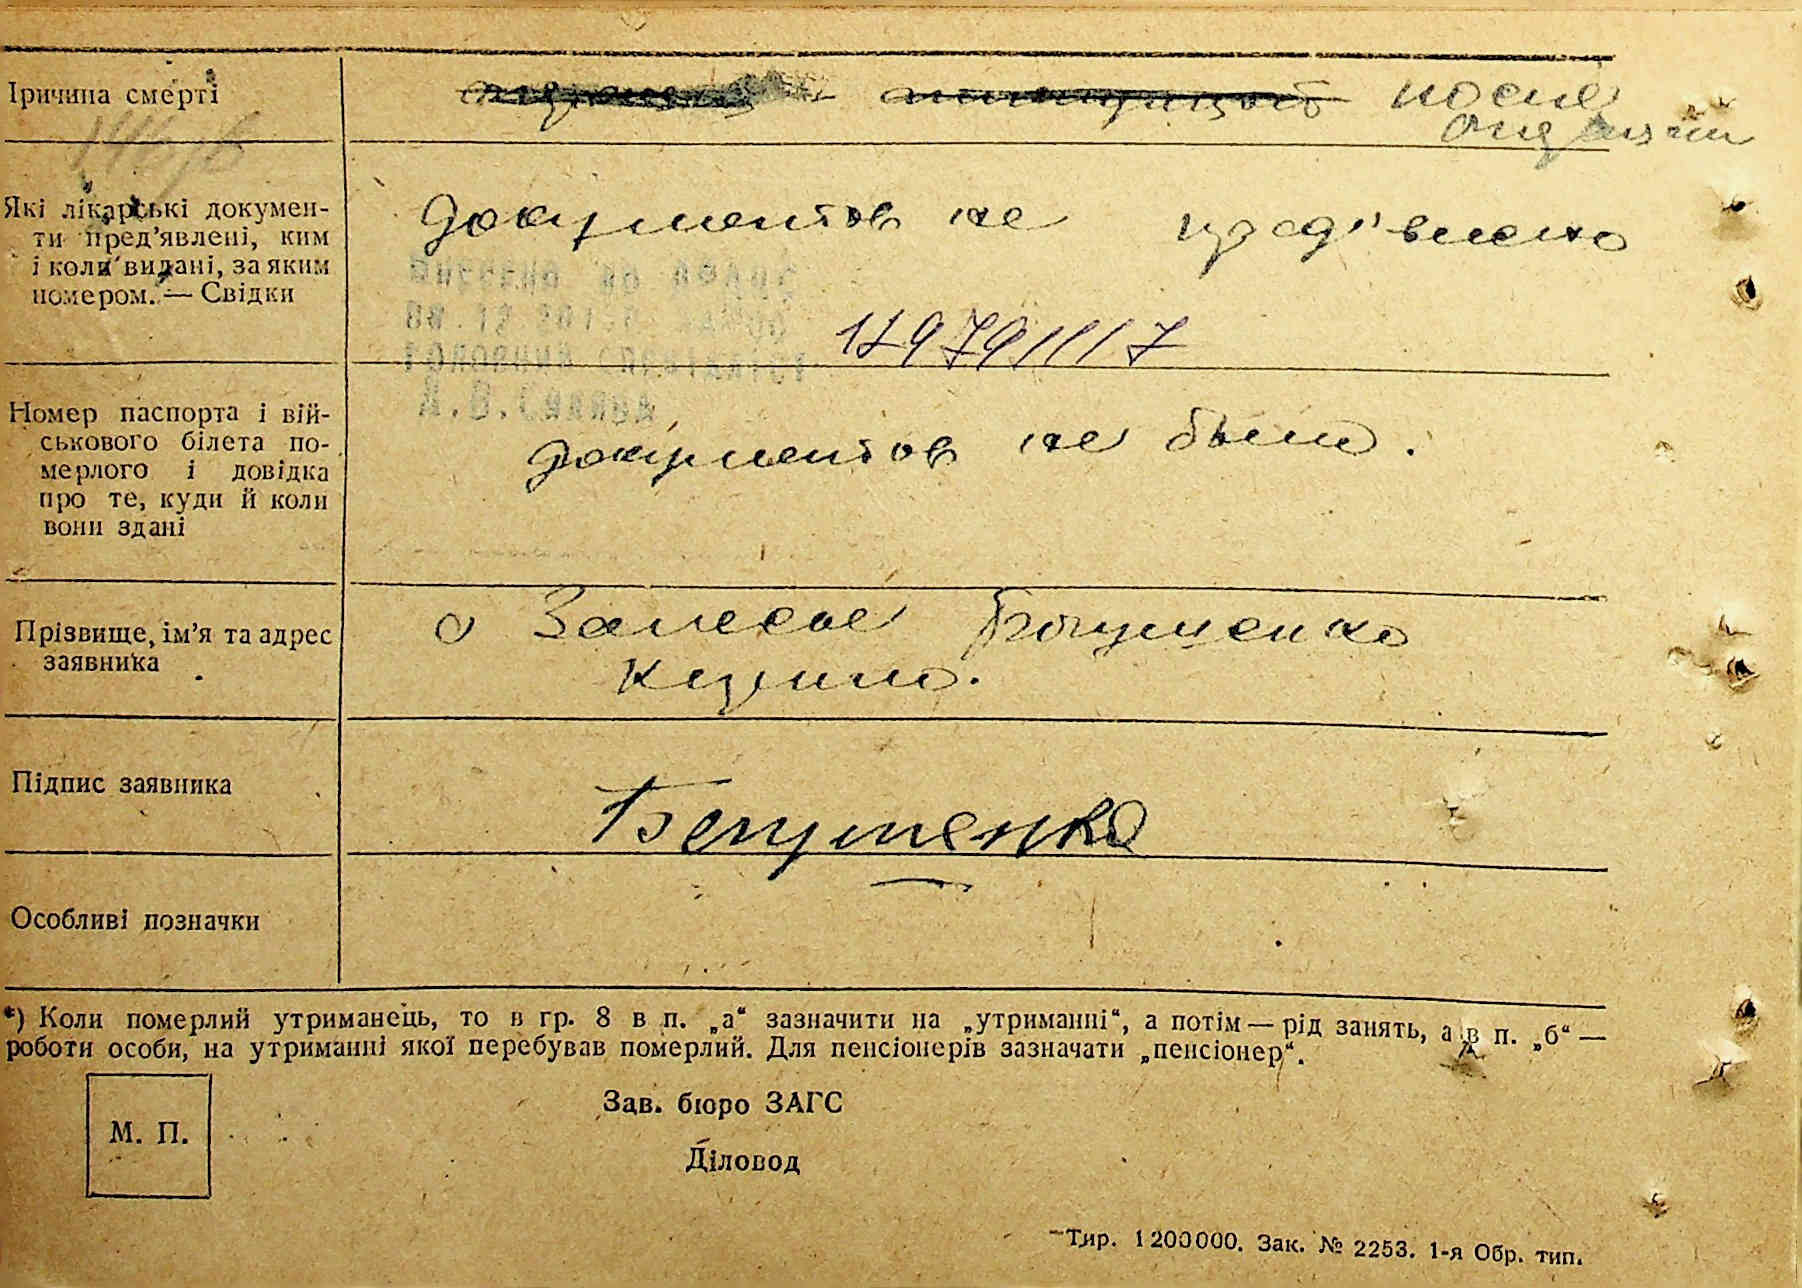 Причина смерті
после
Які лікарські докумен-
ти пред’явлені, ким
і коли видані, за яким
номером. — Свідки
документов не пред'явлено
Номер паспорта і вій-
ськового білета по-
мерлого і довідка
про те, куди й коли
вони здані
документов не было.
Прізвище, ім’я та адрес
заявника
с Залесье
Підпис заявника
Особливі позначки
*) Коли померлий утриманець, то в гр. 8 в п. „а“ зазначити на „утриманні“, а потім — рід занять, а в п. „б“ —
роботи особи, на утриманні якої перебував померлий. Для пенсіонерів зазначати „пенсіонер“.
М. П.
Зав. бюро ЗАГС
Діловод
Тир. 1200000. Зак. № 2253. 1-я Обр. тип.